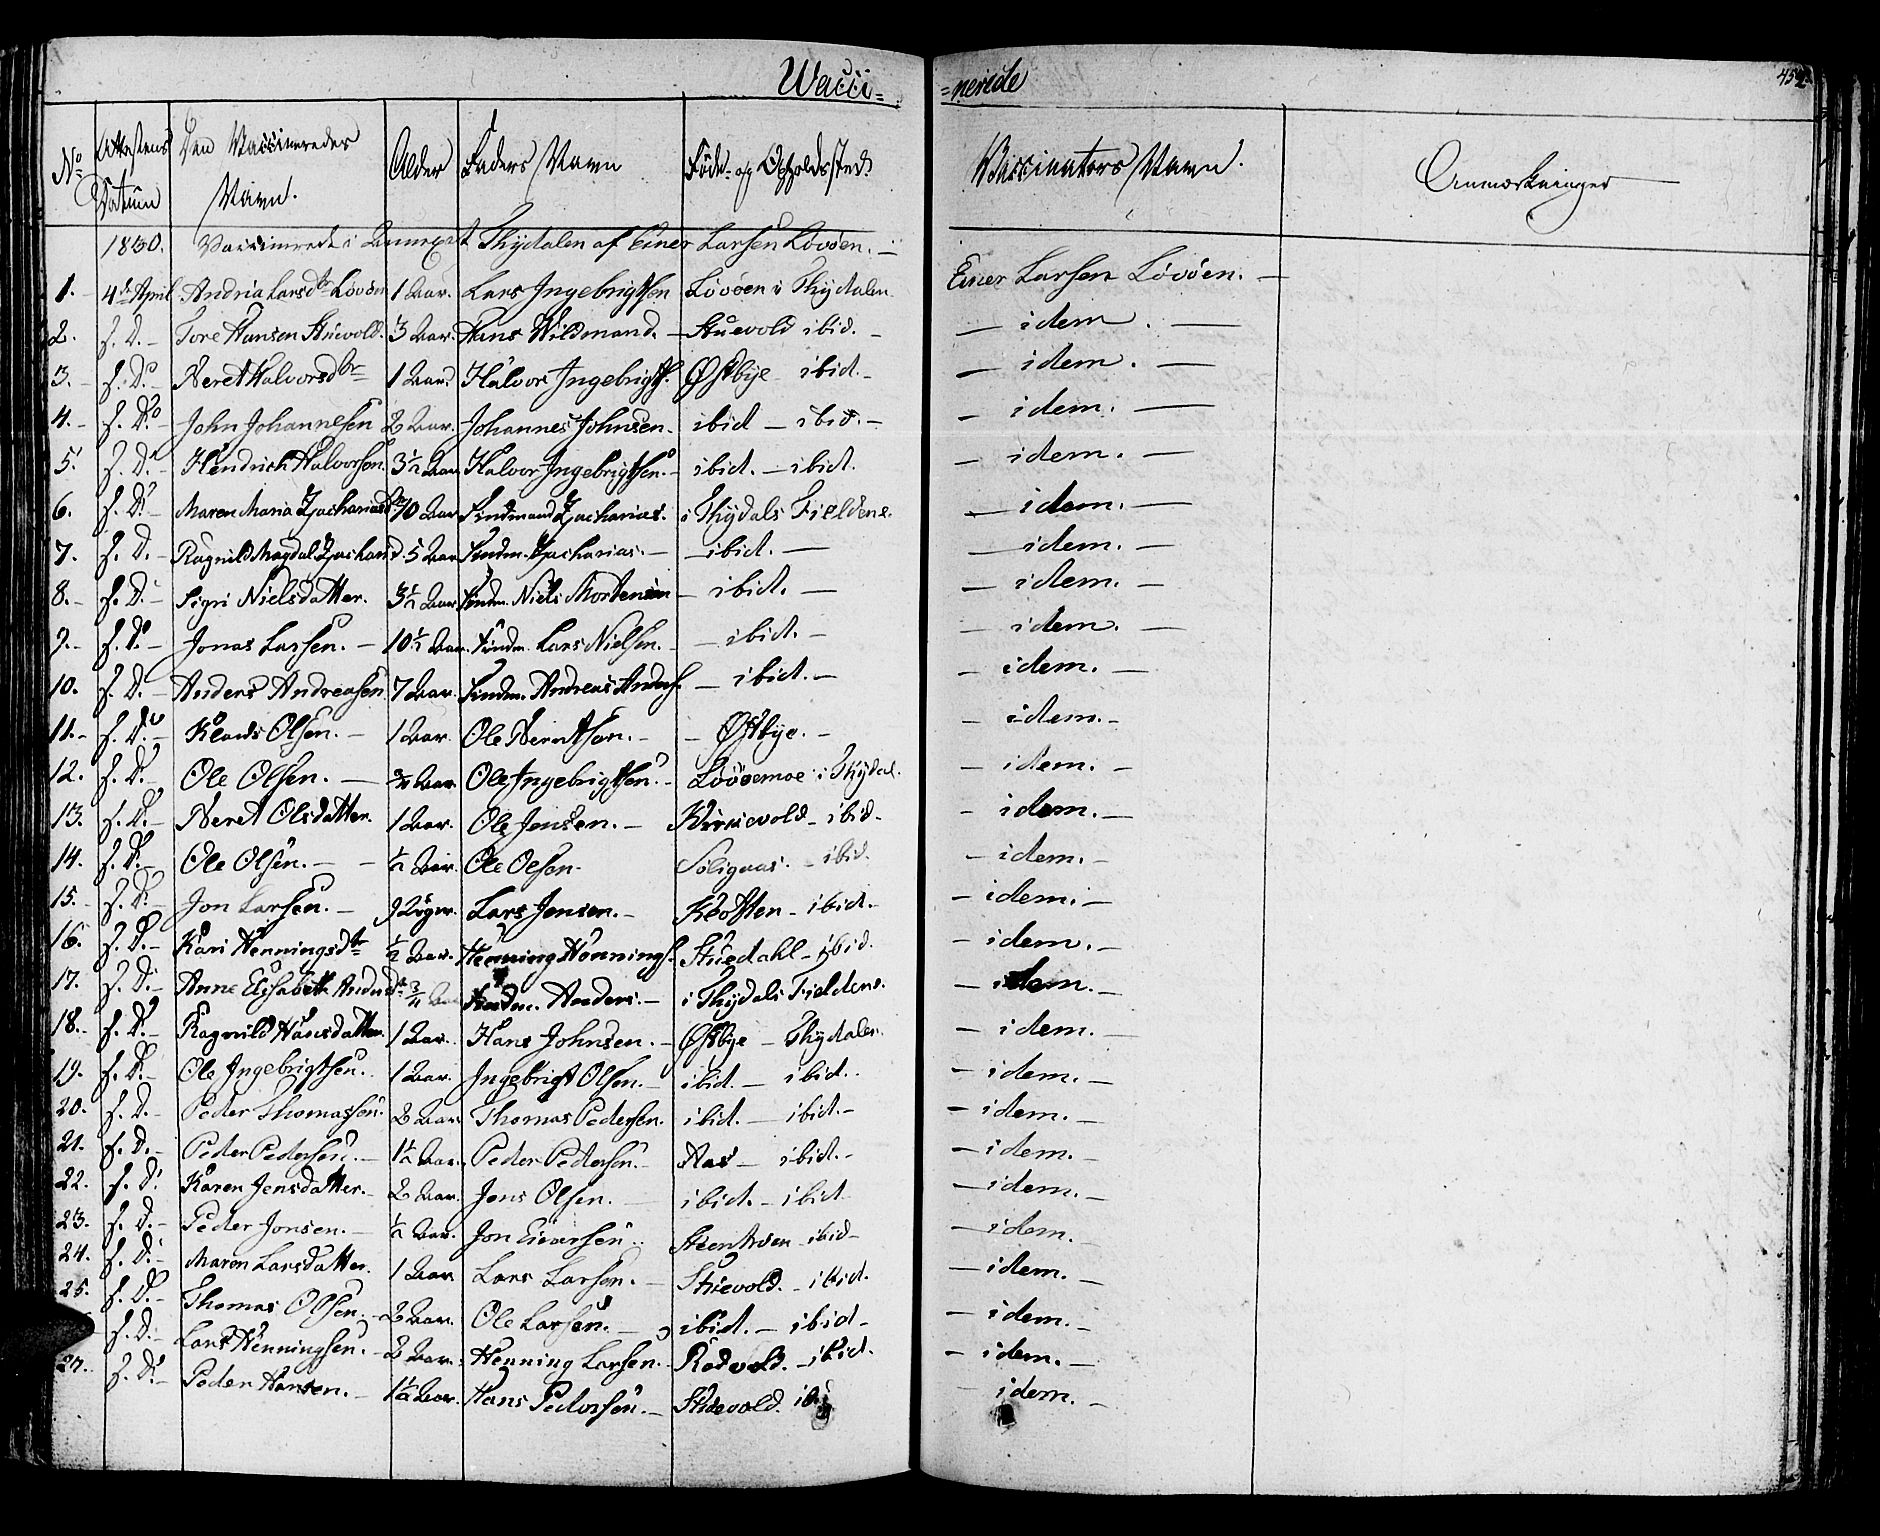 Wacci= =nerede 452
No Attestens Datum Den Vaccineredes Navn. Alder Faders Navn Føde- og Opholdssted Vaccinators Navn. Anmærkninger
1830. Vaccinerede i Annexet Thydalen af Einer Larsen Løvøen.
1. 4de April Andria Larsdtr Løvøen 1 Aar. Lars Ingebrigtsen Løvøen i Thydalen Einer Larsen Løvøen.
2. s. D. Tore Hansen Stuevold. 3 Aar. Hans Wildmand. Stuevold ibid. idem.
3. s. Do Beret Halvorsdtr 1 Aar Halvor Ingebrigts. Østbye ibid. idem.
4. s. Do John Johannesen 2 Aar. Johannes Johnsen. ibid ibid. idem.
5. s. D. Hendrich Halvorsen. 3½ Aar Halvor Ingebrigtsen. ibid. ibid. idem.
6. s. D. Maren Maria Zachariasdtr 70 Aar Findmand Zacharias. i Thydals Fieldene. idem.
7. s. D. Ragnild Magdal Zachariasd. 5 Aar Findm. Zacharias. ibid. idem.
8. s. D. Sigri Nielsdatter. 3½ Aar Findm. Niels Mortensen ibid. idem.
9. s. Do Jonas Larsen. 10½ Aar. Findm. Lars Nielsen. ibid. idem.
10. s. D. Anders Andreasen 7 Aar. Findm. Andreas Anders. ibid. idem.
11. s. D. Klaus Olsen. 1 Aar. Ole Berntsen. Østbye. idem.
12. s. D. Ole Olsen. ¾ Aar. Ole Ingebrigtsen. Løvøemoe i Thydal. idem.
13. s. D. Beret Olsdatter. 1 Aar. Ole Jensen. Kirkevold ibid. idem.
14. s. D. Ole Olsen. ½ Aar. Ole Olsen. ibid. idem.
15. s. D. Jon Larsen. 9 Uger. Lars Jensen. Kløften ibid. idem.
16. s. D. Kari Henningsdtr ½ Aar. Henning Hennings. Stuedahl ibid. idem.
17. s. D. Anne Elisabeth Andersdtr ¾ Aar Findm. Anders. i Thydals Fieldene. idem.
18. s. D. Ragnild Hansdatter. 1 Aar. Hans Johnsen. Østbye Thydalen. idem.
19. s. D. Ole Ingebrigtsen. 1 Aar. Ingebrigt Olsen. ibid. ibid. idem.
20. s. D. Peder Thomassen. 2 Aar. Thomas Pedersen. ibid. ibid. idem.
21. s. D. Peder Pedersen. 1½ Aar. Peder Pedersen. Aas ibid. idem.
22. s. D. Karen Jensdatter. 2 Aar. Jens Olsen. ibid. ibid. idem.
23. s. D. Peder Jonsen. ½ Aar. Jon Eivarsen. ibid idem.
24. s. D. Maren Larsdatter. 1 Aar Lars Larsen. Stuevold. ibid. idem.
25. s. D. Thomas Olsen. 2 Aar. Ole Larsen. ibid. ibid idem.
s. D. Lars Henningsen. 2 Aar. Henning Larsen. Rødvold. ibid. idem.
27. s. D. Peder Hansen. 1½ Aar. Hans Pedersen. Stuevold. ibid idem.